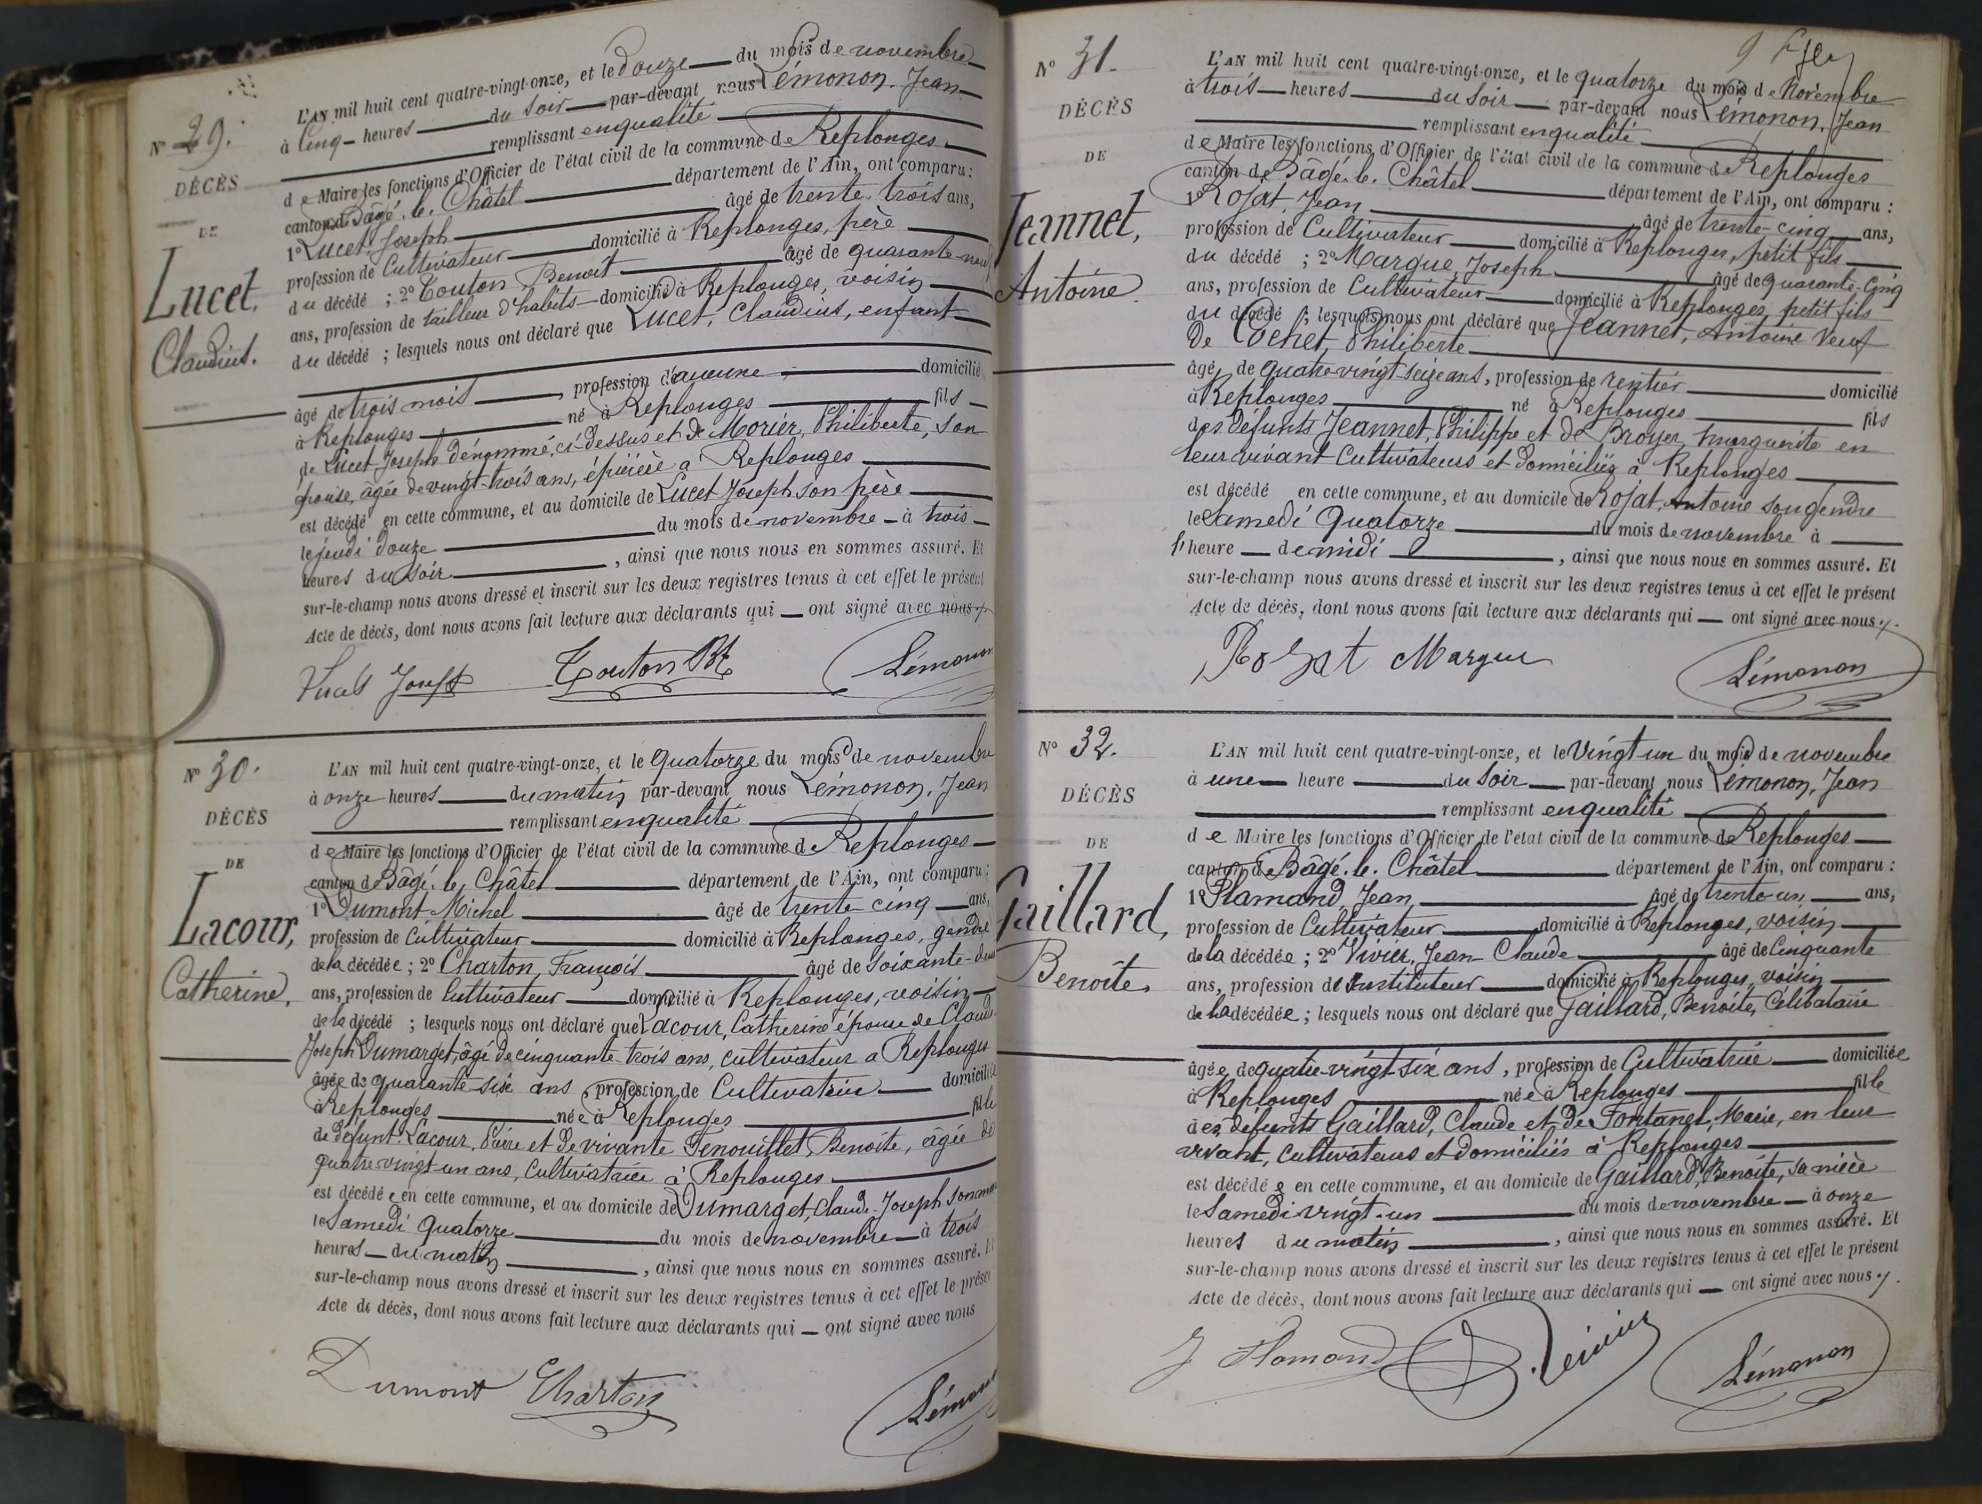 N° 29.
DÉCÈS
DE
Lucet,
Claudius.
L'AN mil huit cent quatre-vingt-onze, et le Douze du mois de novembre
à Cinq heures du Soir par-devant nous Lémonon, Jean
remplissant en qualité
de Maire les fonctions d'Officier de l'état civil de la commune de Replonges
canton de Bâgé-le-Châtel département de l'Ain, ont comparu :
1° Lucet Joseph âgé de trente-trois ans,
profession de Cultivateur domicilié à Replonges, père
du décédé ; 2° Touton, Benoit âgé de quarante-neuf
ans, profession de tailleur d'habits domicilié à Replonges, voisin
du décédé ; lesquels nous ont déclaré que Lucet, Claudius, enfant
âgé de trois mois, profession d'aucune domicilié
à Replonges né à Replonges fils
de Lucet Joseph dénommé ci-dessus et de Morier, Philiberte, son
épouse, âgée de vingt-trois ans, épicière a Replonges
est décédé en cette commune, et au domicile de Lucet Joseph son père
le jeudi douze du mois de novembre à trois
heures du Soir, ainsi que nous nous en sommes assuré. Et
sur-le-champ nous avons dressé et inscrit sur les deux registres tenus à cet effet le présent
Acte de décès, dont nous avons fait lecture aux déclarants qui ont signé avec nous
Lucet Joseph Touton Bt Lémonon
N° 30.
DÉCÈS
DE
Lacour,
Catherine.
L'AN mil huit cent quatre-vingt-onze, et le quatorze du mois de novembre
à onze heures du matin par-devant nous Lémonon, Jean
remplissant en qualité
de Maire les fonctions d'Officier de l'état civil de la commune de Replonges
canton de Bâgé-le-Châtel département de l'Ain, ont comparu :
1° Dumont Michel âgé de trente cinq ans,
profession de Cultivateur domicilié à Replonges, gendre
de la décédée ; 2° Charton, François âgé de soixante-deux
ans, profession de Cultivateur domicilié à Replonges, voisin
de la décédé ; lesquels nous ont déclaré que Lacour, Catherine épouse de Claude
Joseph Dumarget, âgé de cinquante-trois ans, cultivateur a Replonges
âgée de quarante-six ans, profession de Cultivatrice domiciliée
à Replonges née à Replonges fille
de défunt Lacour, et de vivante Genouillet, Benoite, âgée de
quatre-vingt-un ans, cultivatrice à Replonges
est décédée en cette commune, et au domicile de Dumarget, Claude-Joseph son mari
le Samedi quatorze du mois de novembre à trois
heures du matin, ainsi que nous nous en sommes assuré. Et
sur-le-champ nous avons dressé et inscrit sur les deux registres tenus à cet effet le présent
Acte de décès, dont nous avons fait lecture aux déclarants qui ont signé avec nous
Dumont Charton Lémonon
N° 31.
DÉCÈS
DE
Jeannet,
Antoine.
L'AN mil huit cent quatre-vingt-onze, et le quatorze du mois de Novembre
à trois heures du Soir par-devant nous Lémonon, Jean
remplissant en qualité
de Maire les fonctions d'Officier de l'état civil de la commune de Replonges
canton de Bâgé-le-Châtel département de l'Ain, ont comparu :
1° Rojat, Jean âgé de trente-cinq ans,
profession de Cultivateur domicilié à Replonges, petit fils
du décédé ; 2° Margue, Joseph âgé de quarante-cinq
ans, profession de Cultivateur domicilié à Replonges, petit fils
du décédé ; lesquels nous ont déclaré que Jeannet, Antoine Veuf
de Cochet, Philiberte
âgé de quatre-vingt-seize ans, profession de rentier domicilié
à Replonges né à Replonges fils
des défunts Jeannet, Philippe et de Broyer, Marguerite en
leur vivant Cultivateurs et domiciliés à Replonges
est décédé en cette commune, et au domicile de Rojat, Antoine son gendre
le Samedi quatorze du mois de novembre à
heure de midi, ainsi que nous nous en sommes assuré. Et
sur-le-champ nous avons dressé et inscrit sur les deux registres tenus à cet effet le présent
Acte de décès, dont nous avons fait lecture aux déclarants qui ont signé avec nous
Rojat Margue Lémonon
N° 32.
DÉCÈS
DE
Gaillard,
Benoîte.
L'AN mil huit cent quatre-vingt-onze, et le Vingt un du mois de novembre
à une heure du Soir par-devant nous Lémonon, Jean
remplissant en qualité
de Maire les fonctions d'Officier de l'état civil de la commune de Replonges
canton de Bâgé-le-Châtel département de l'Ain, ont comparu :
1° Flamand, Jean âgé de trente-un ans,
profession de Cultivateur domicilié à Replonges, voisin
de la décédée ; 2° Vivier, Jean-Claude âgé de Cinquante
ans, profession de Instituteur domicilié à Replonges, voisin
de la décédée ; lesquels nous ont déclaré que Gaillard, Benoite, Célibataire
âgée de quatre-vingt-six ans, profession de Cultivatrice domiciliée
à Replonges née à Replonges fille
des défunts Gaillard, Claude et de Fontanel, Marie, en leur
vivant, cultivateurs et domiciliés à Replonges
est décédée en cette commune, et au domicile de Gaillard, Benoite, sa nièce
le Samedi vingt-un du mois de novembre à onze
heures du matin, ainsi que nous nous en sommes assuré. Et
sur-le-champ nous avons dressé et inscrit sur les deux registres tenus à cet effet le présent
Acte de décès, dont nous avons fait lecture aux déclarants qui ont signé avec nous
J Flamand Vivier Lémonon